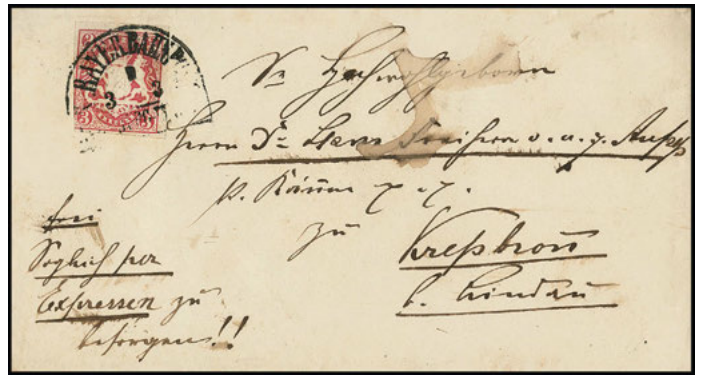 BAYER.BAHNP
3 3
3 3
Sr Hochwohlgeborn
Herrn Dr Hans Freiherr v. u. z. Aufseß
k. Käm̄
zu
Kreßbron̄
b. Lindau
frei
Sogleich per
Expressen zu
besorgen!!